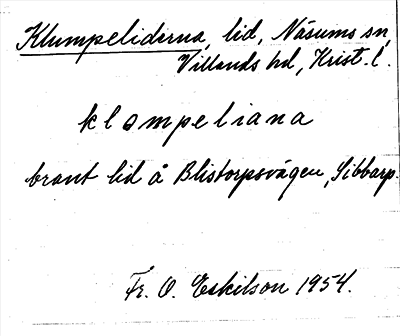 Klumpeliderna, lid, Näsums sn,
Villands hd, Krist. l.
klompeliana
brant lid å Blistorpsvägen, Sibbarp.
Fr. O. Eskilson 1954.